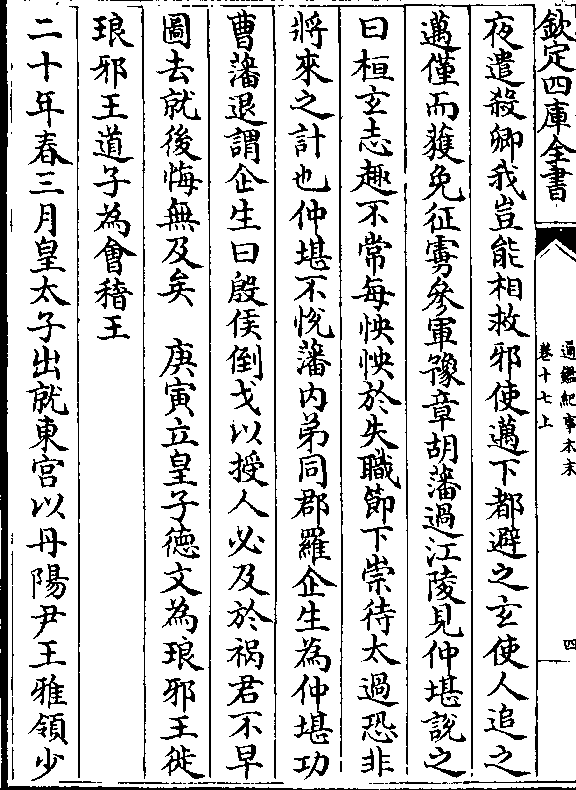 欽定四庫全書
通鑑紀事本末
卷十七上
四
夜遣殺卿我豈能相救邪使邁下都避之玄使人追之
邁僅而獲免征虜參軍豫章胡藩過江陵見仲堪說之
曰桓玄志趣不常每怏怏於失職節下崇待太過恐非
將來之計也仲堪不悅藩内弟同郡羅企生為仲堪功
曹藩退謂企生曰殷侯倒戈以授人必及於禍君不早
圖去就後悔無及矣　庚寅立皇子德文為琅邪王徙
琅邪王道子為會稽王
二十年春三月皇太子出就東宮以丹陽尹王雅領少